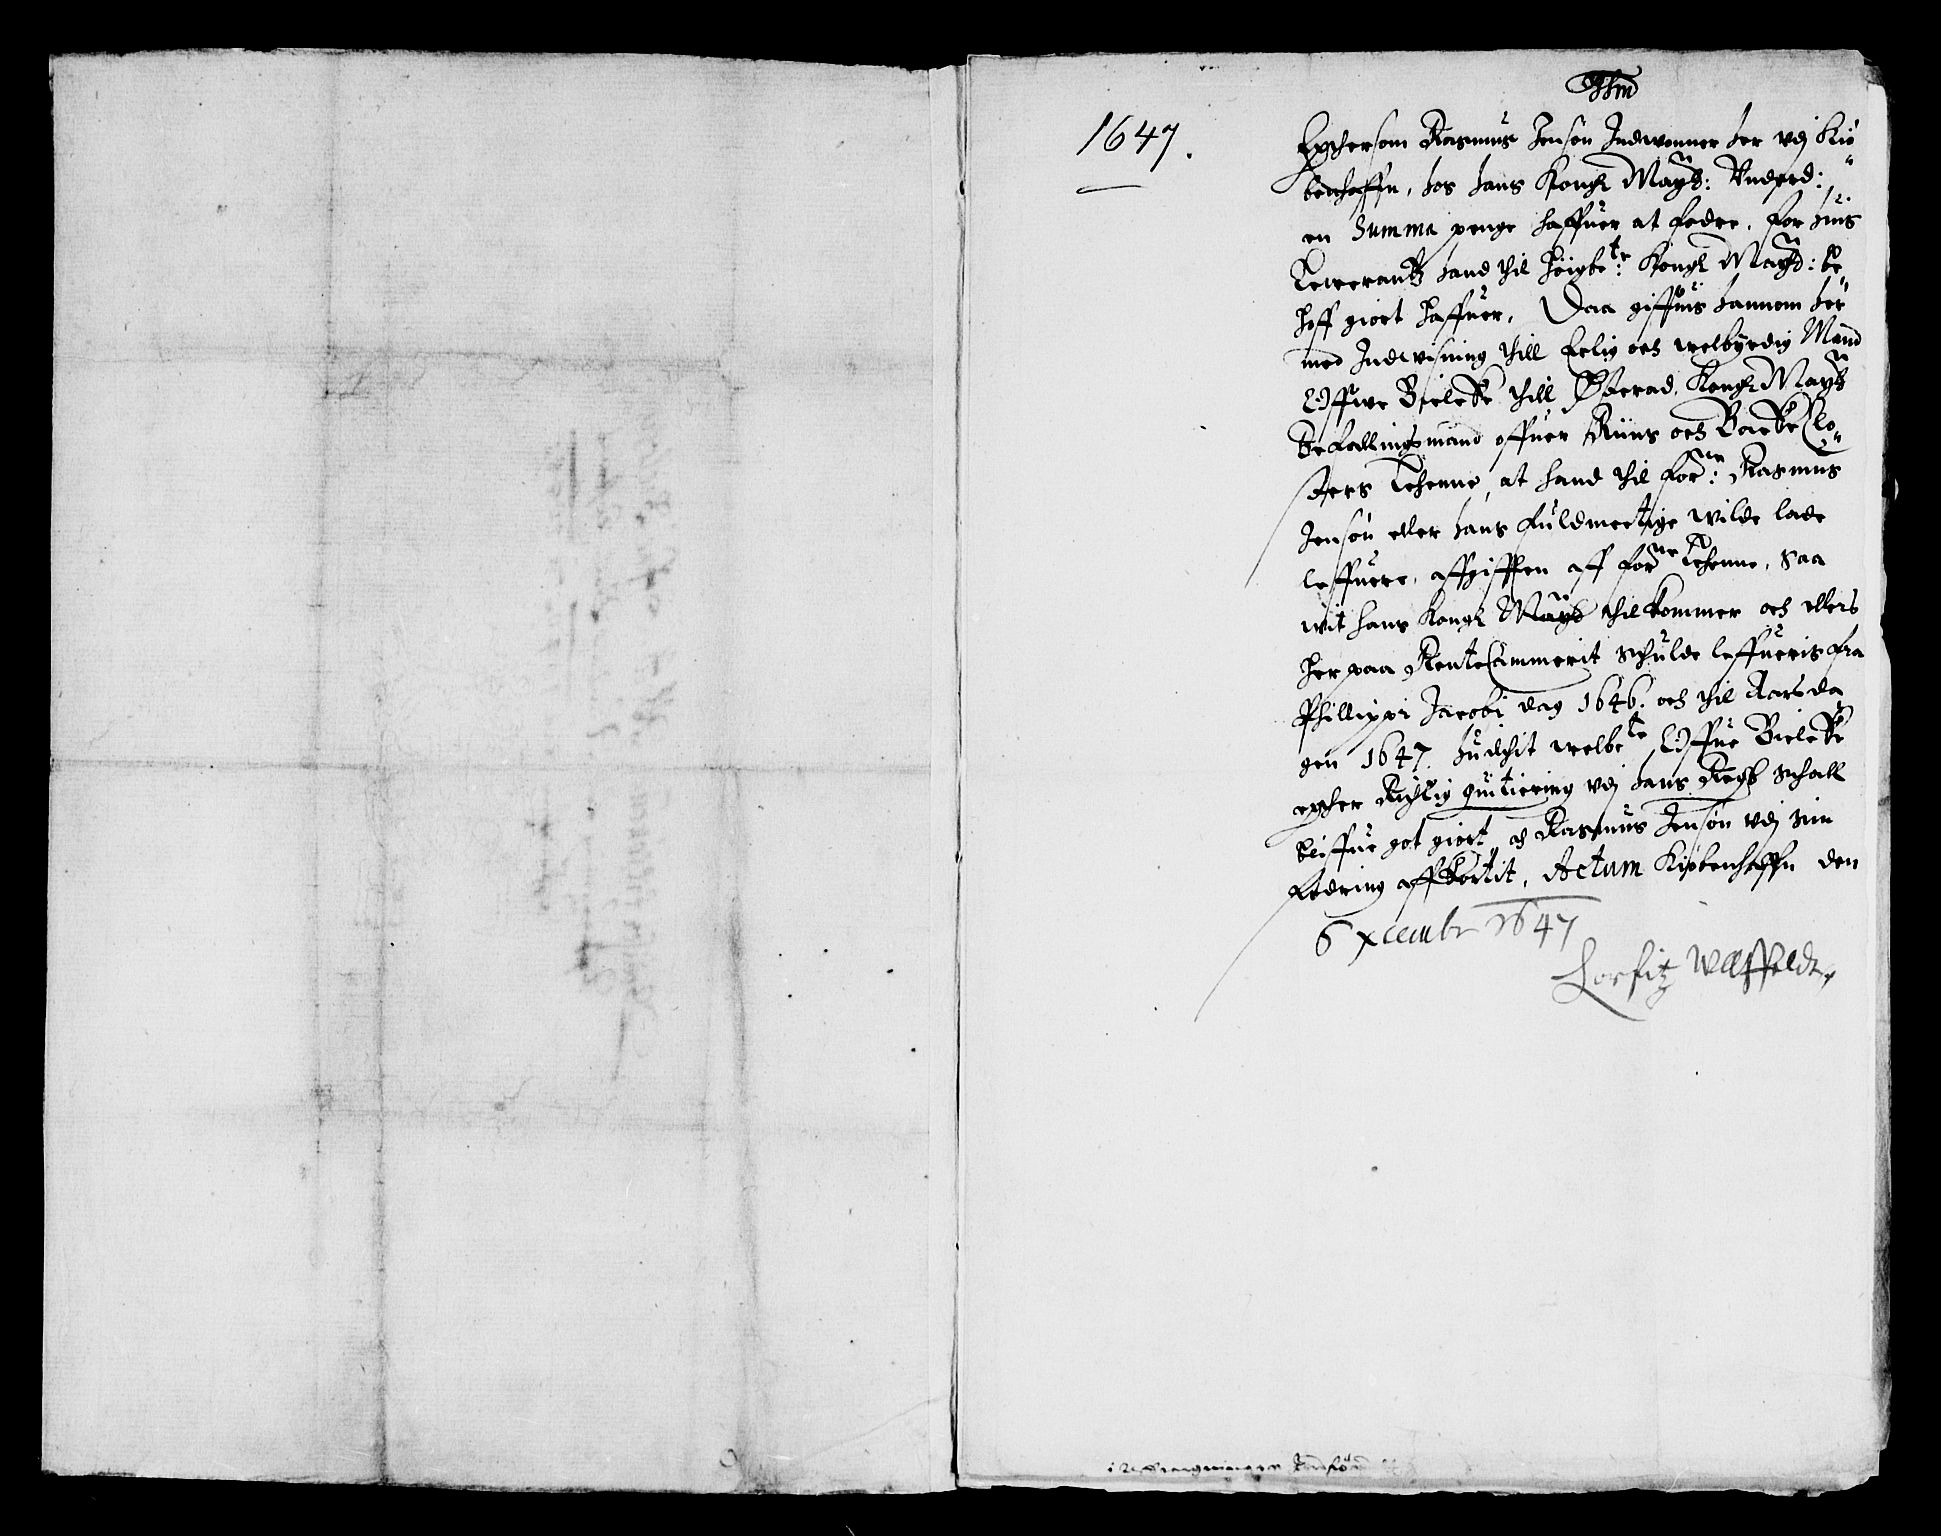 1647.
Epthersom Rasmus Jensøn Indwonner her vdj Kiø
benhaffn, hos hans Kongl Maytt: Vnderd:
en Summa penge haffuer at fodre, for huis
Lewerantz hand thil høigbete: Kongl Maytt: be
hoff giort haffuer, Daa giffuis hannom her
med Indwisning thill Erlig och welbyrdig Mand
Offwe Bielcke thill Østeraad, Kongl Maytt
Befallingsmand offuer Riins och Backe Clo
sters Lehenne, at hand thil forne: Rasmus
Jensøn eller hans fuldmectige wilde lade
leffuere, affgifften aff forne Lehenne, saa
wit hans Kongl Maytt thilkommer och ellers
her paa Rente Cammerit schulde leffueris fra
Phillippi Jacobi dag 1646. och thil Aarsda
gen 1647. huilchit welbete Offue Bielcke
epther Richtig quittering vdj hans Regsb schall
bliffue got giort, och Rasmus Jensøn vdj sin
fodring affkortit, Actum Kiøbenhaffn den
6 xcembr 1647
Corfitz Wllffeldt